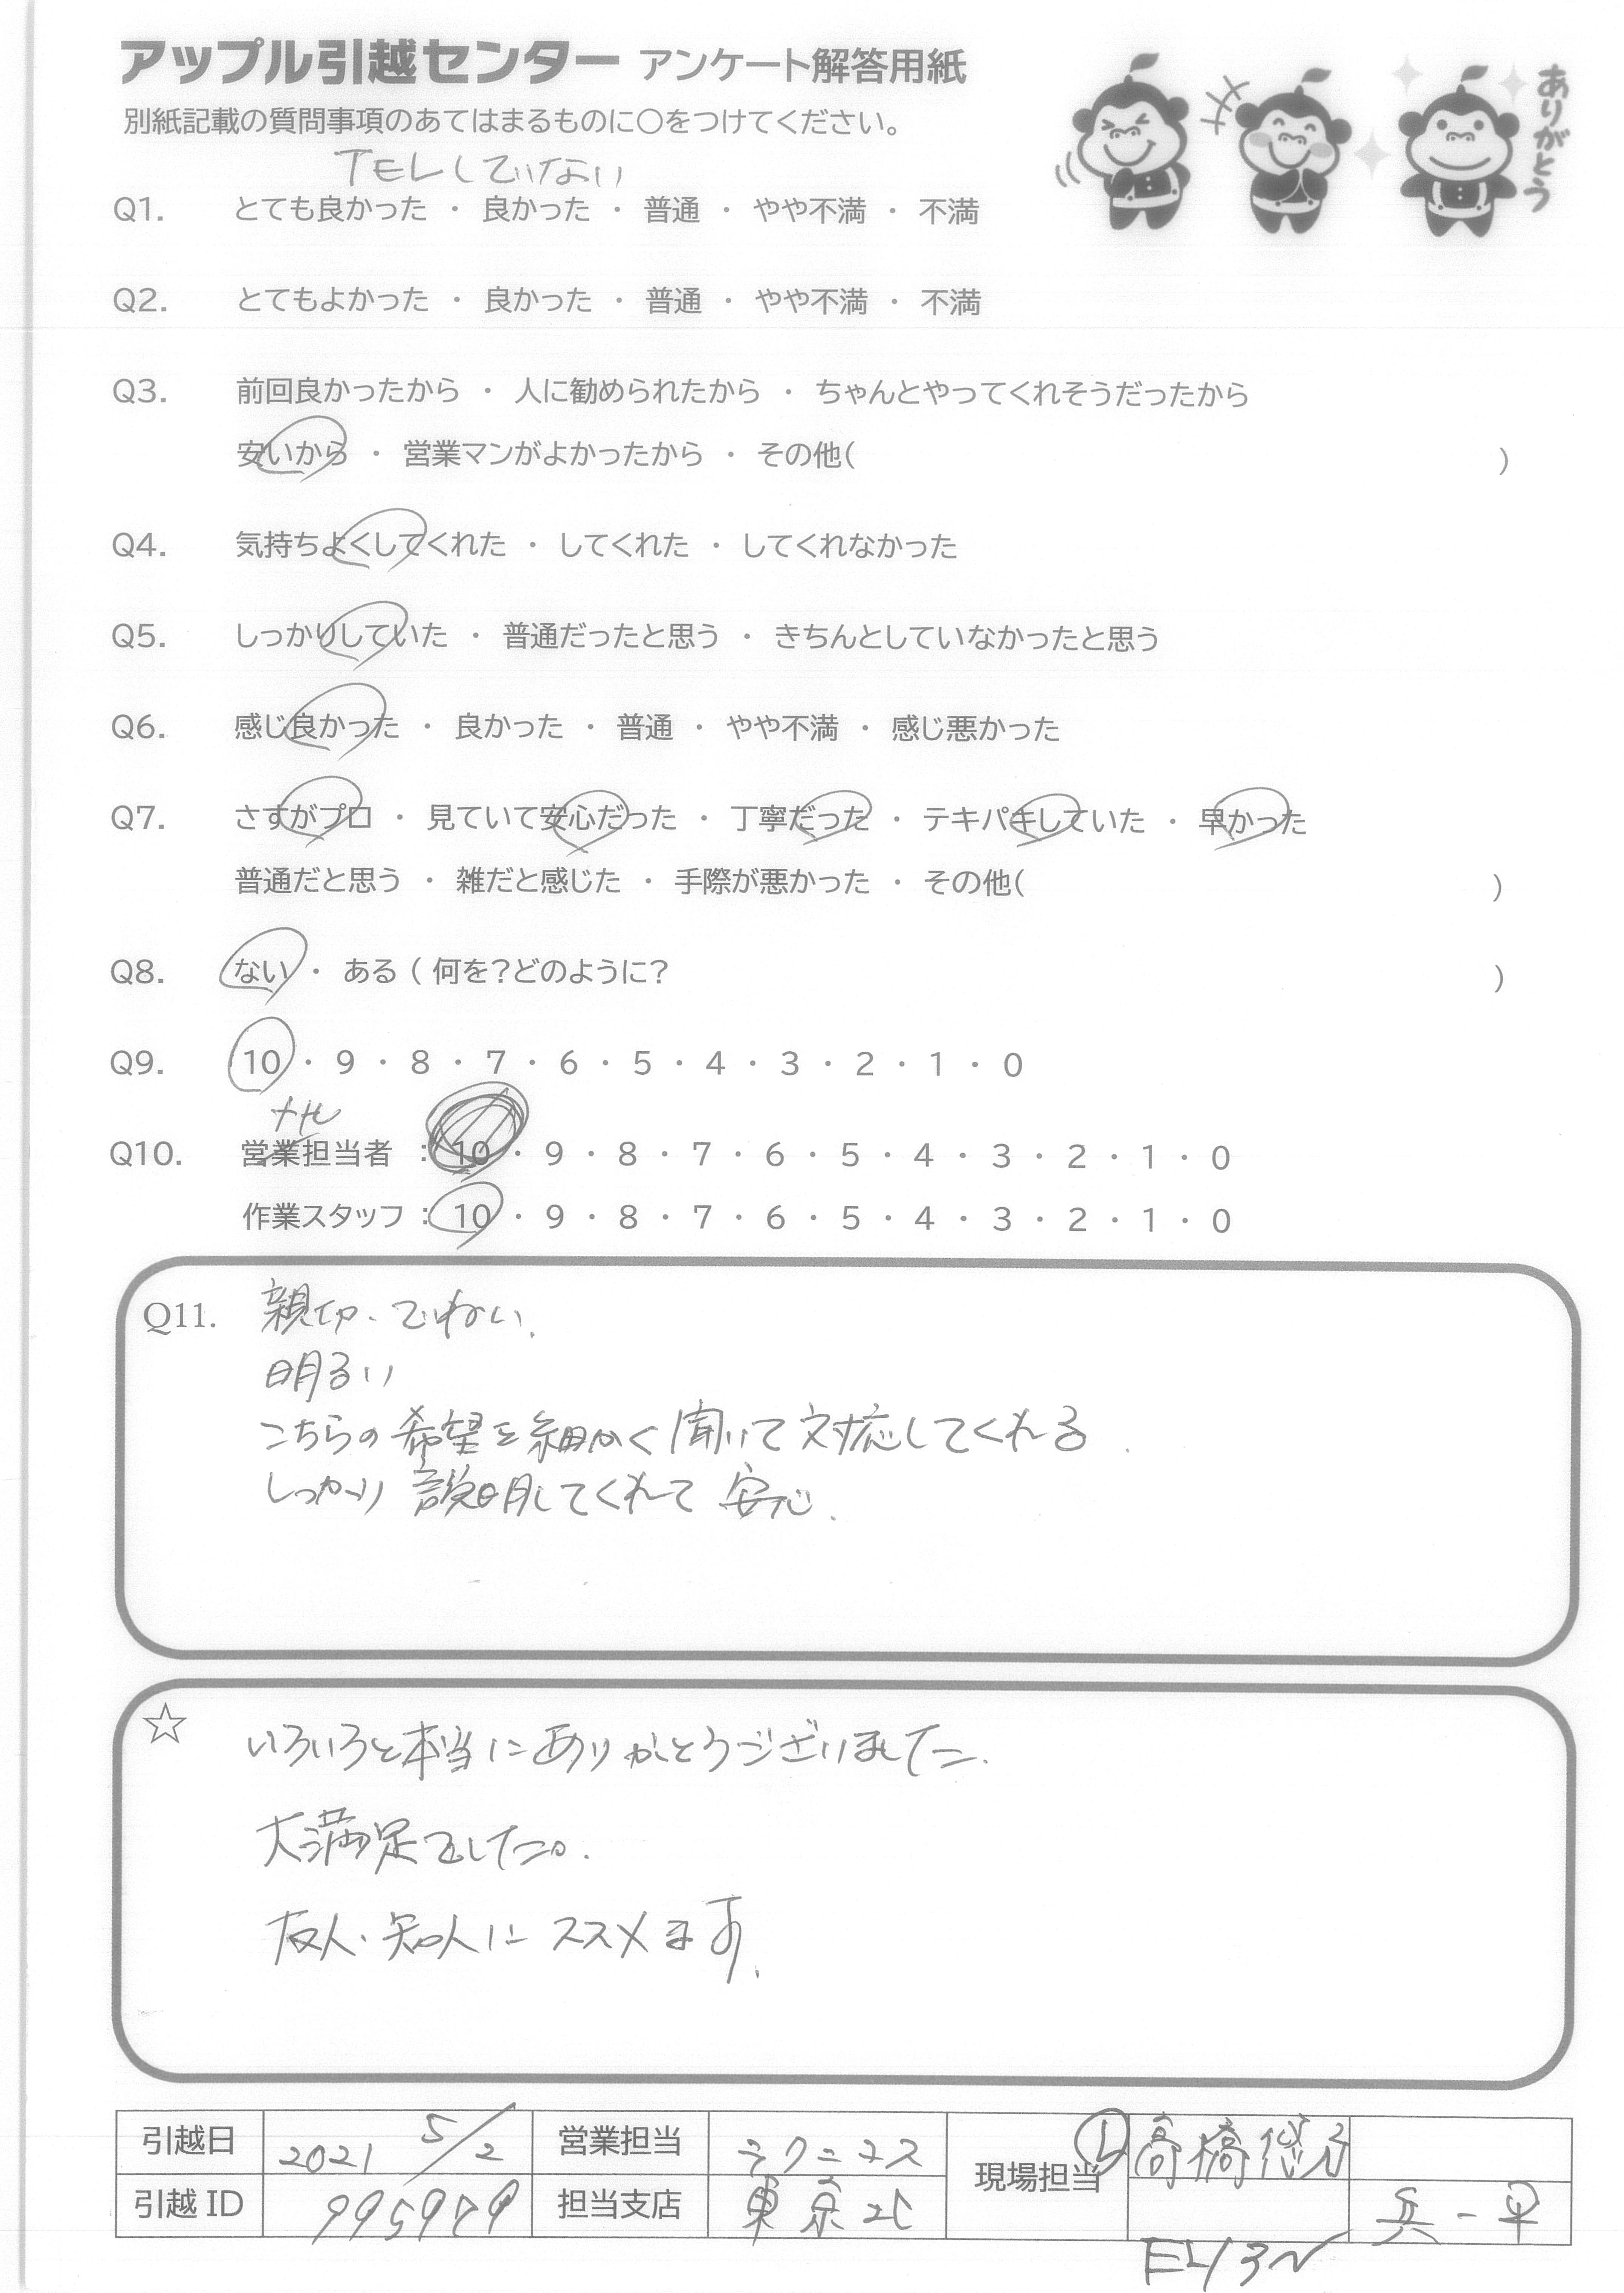 アップル引越センター アンケート解答用紙
別紙記載の質問事項のあてはまるものに〇をつけてください。
ありがとう
TELしていない
Q1. とても良かった ・ 良かった ・ 普通 ・ やや不満 ・ 不満
Q2. とてもよかった ・ 良かった ・ 普通 ・ やや不満 ・ 不満
Q3. 前回良かったから ・ 人に勧められたから ・ ちゃんとやってくれそうだったから
安いから ・ 営業マンがよかったから ・ その他( )
Q4. 気持ちよくしてくれた ・ してくれた ・ してくれなかった
Q5. しっかりしていた ・ 普通だったと思う ・ きちんとしていなかったと思う
Q6. 感じ良かった ・ 良かった ・ 普通 ・ やや不満 ・ 感じ悪かった
Q7. さすがプロ ・ 見ていて安心だった ・ 丁寧だった ・ テキパキしていた ・ 早かった
普通だと思う ・ 雑だと感じた ・ 手際が悪かった ・ その他( )
Q8. ない ・ ある ( 何を?どのように? )
Q9. 10 ・ 9 ・ 8 ・ 7 ・ 6 ・ 5 ・ 4 ・ 3 ・ 2 ・ 1 ・ 0
ナシ
Q10. 営業担当者 : 10 ・ 9 ・ 8 ・ 7 ・ 6 ・ 5 ・ 4 ・ 3 ・ 2 ・ 1 ・ 0
作業スタッフ : 10 ・ 9 ・ 8 ・ 7 ・ 6 ・ 5 ・ 4 ・ 3 ・ 2 ・ 1 ・ 0
Q11. 親切・ていねい.
明るい
こちらの希望を細かく聞いて対応してくれる.
しっかり説明してくれて安心.
☆ いろいろと本当にありがとうございました.
大満足でした。
友人・知人にススメます.
引越日 2021 5/2 営業担当 現場担当 高橋
引越 ID 995979 担当支店 東京北